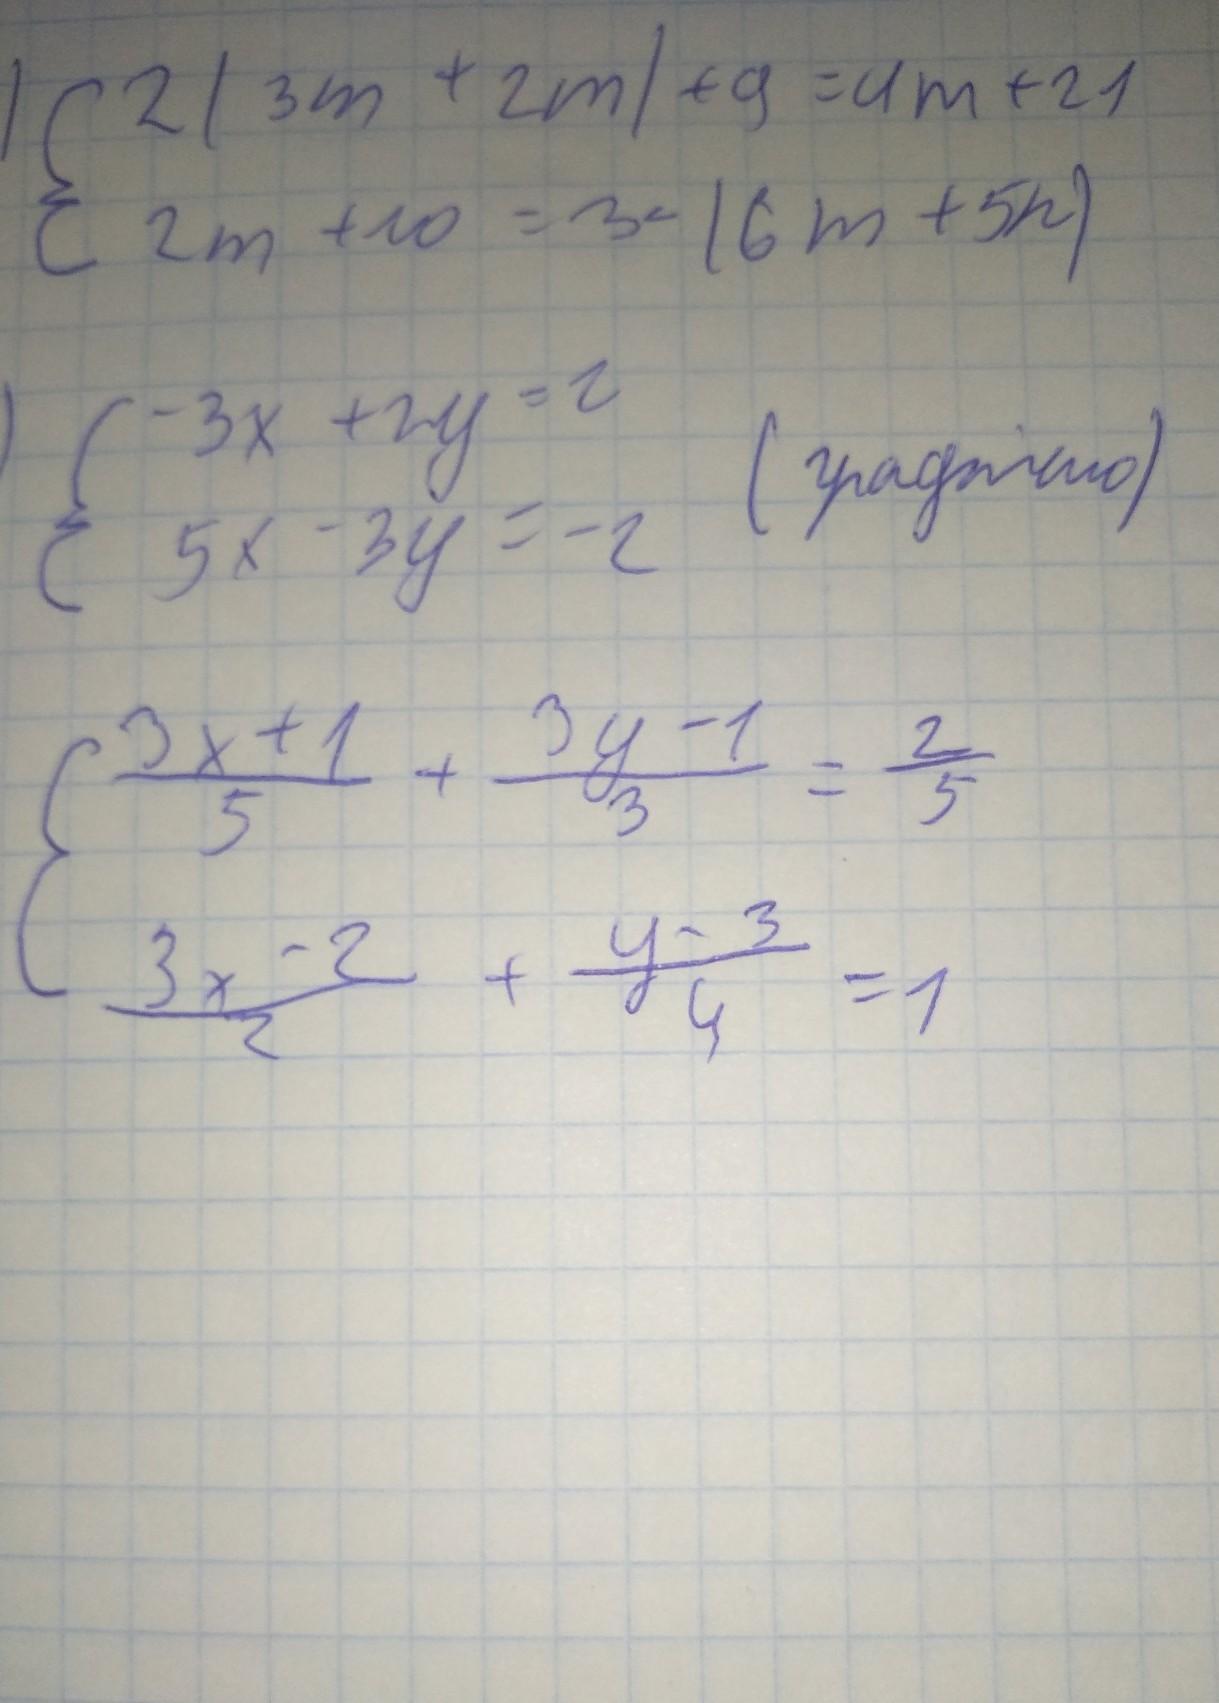 ) { 2(3m + 2m) + 9 = 4m + 21
2m + 10 = 3 - (6m + 5n)
) { -3x + 2y = 2
(графічно)
5x - 3y = -2
{ (3x + 1)/5 + (3y - 1)/3 = 2/5
(3x - 2)/2 + (y - 3)/4 = 1